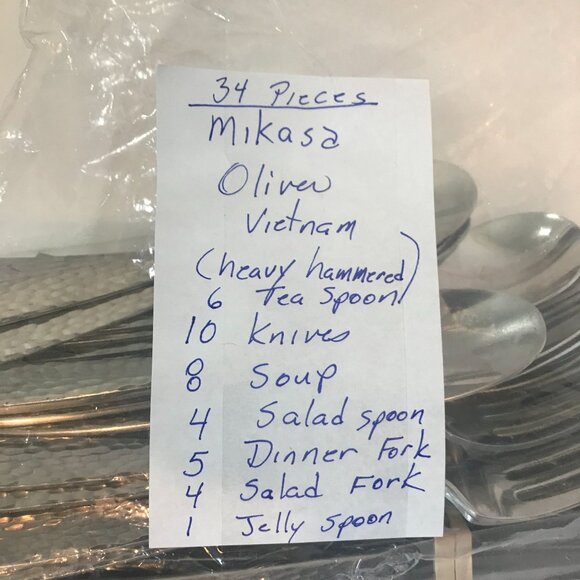 34 Pieces
Mikasa
Oliver
Vietnam
(heavy hammered)
6 Tea Spoon
10 Knives
8 Soup
4 Salad spoon
5 Dinner Fork
4 Salad Fork
1 Jelly spoon